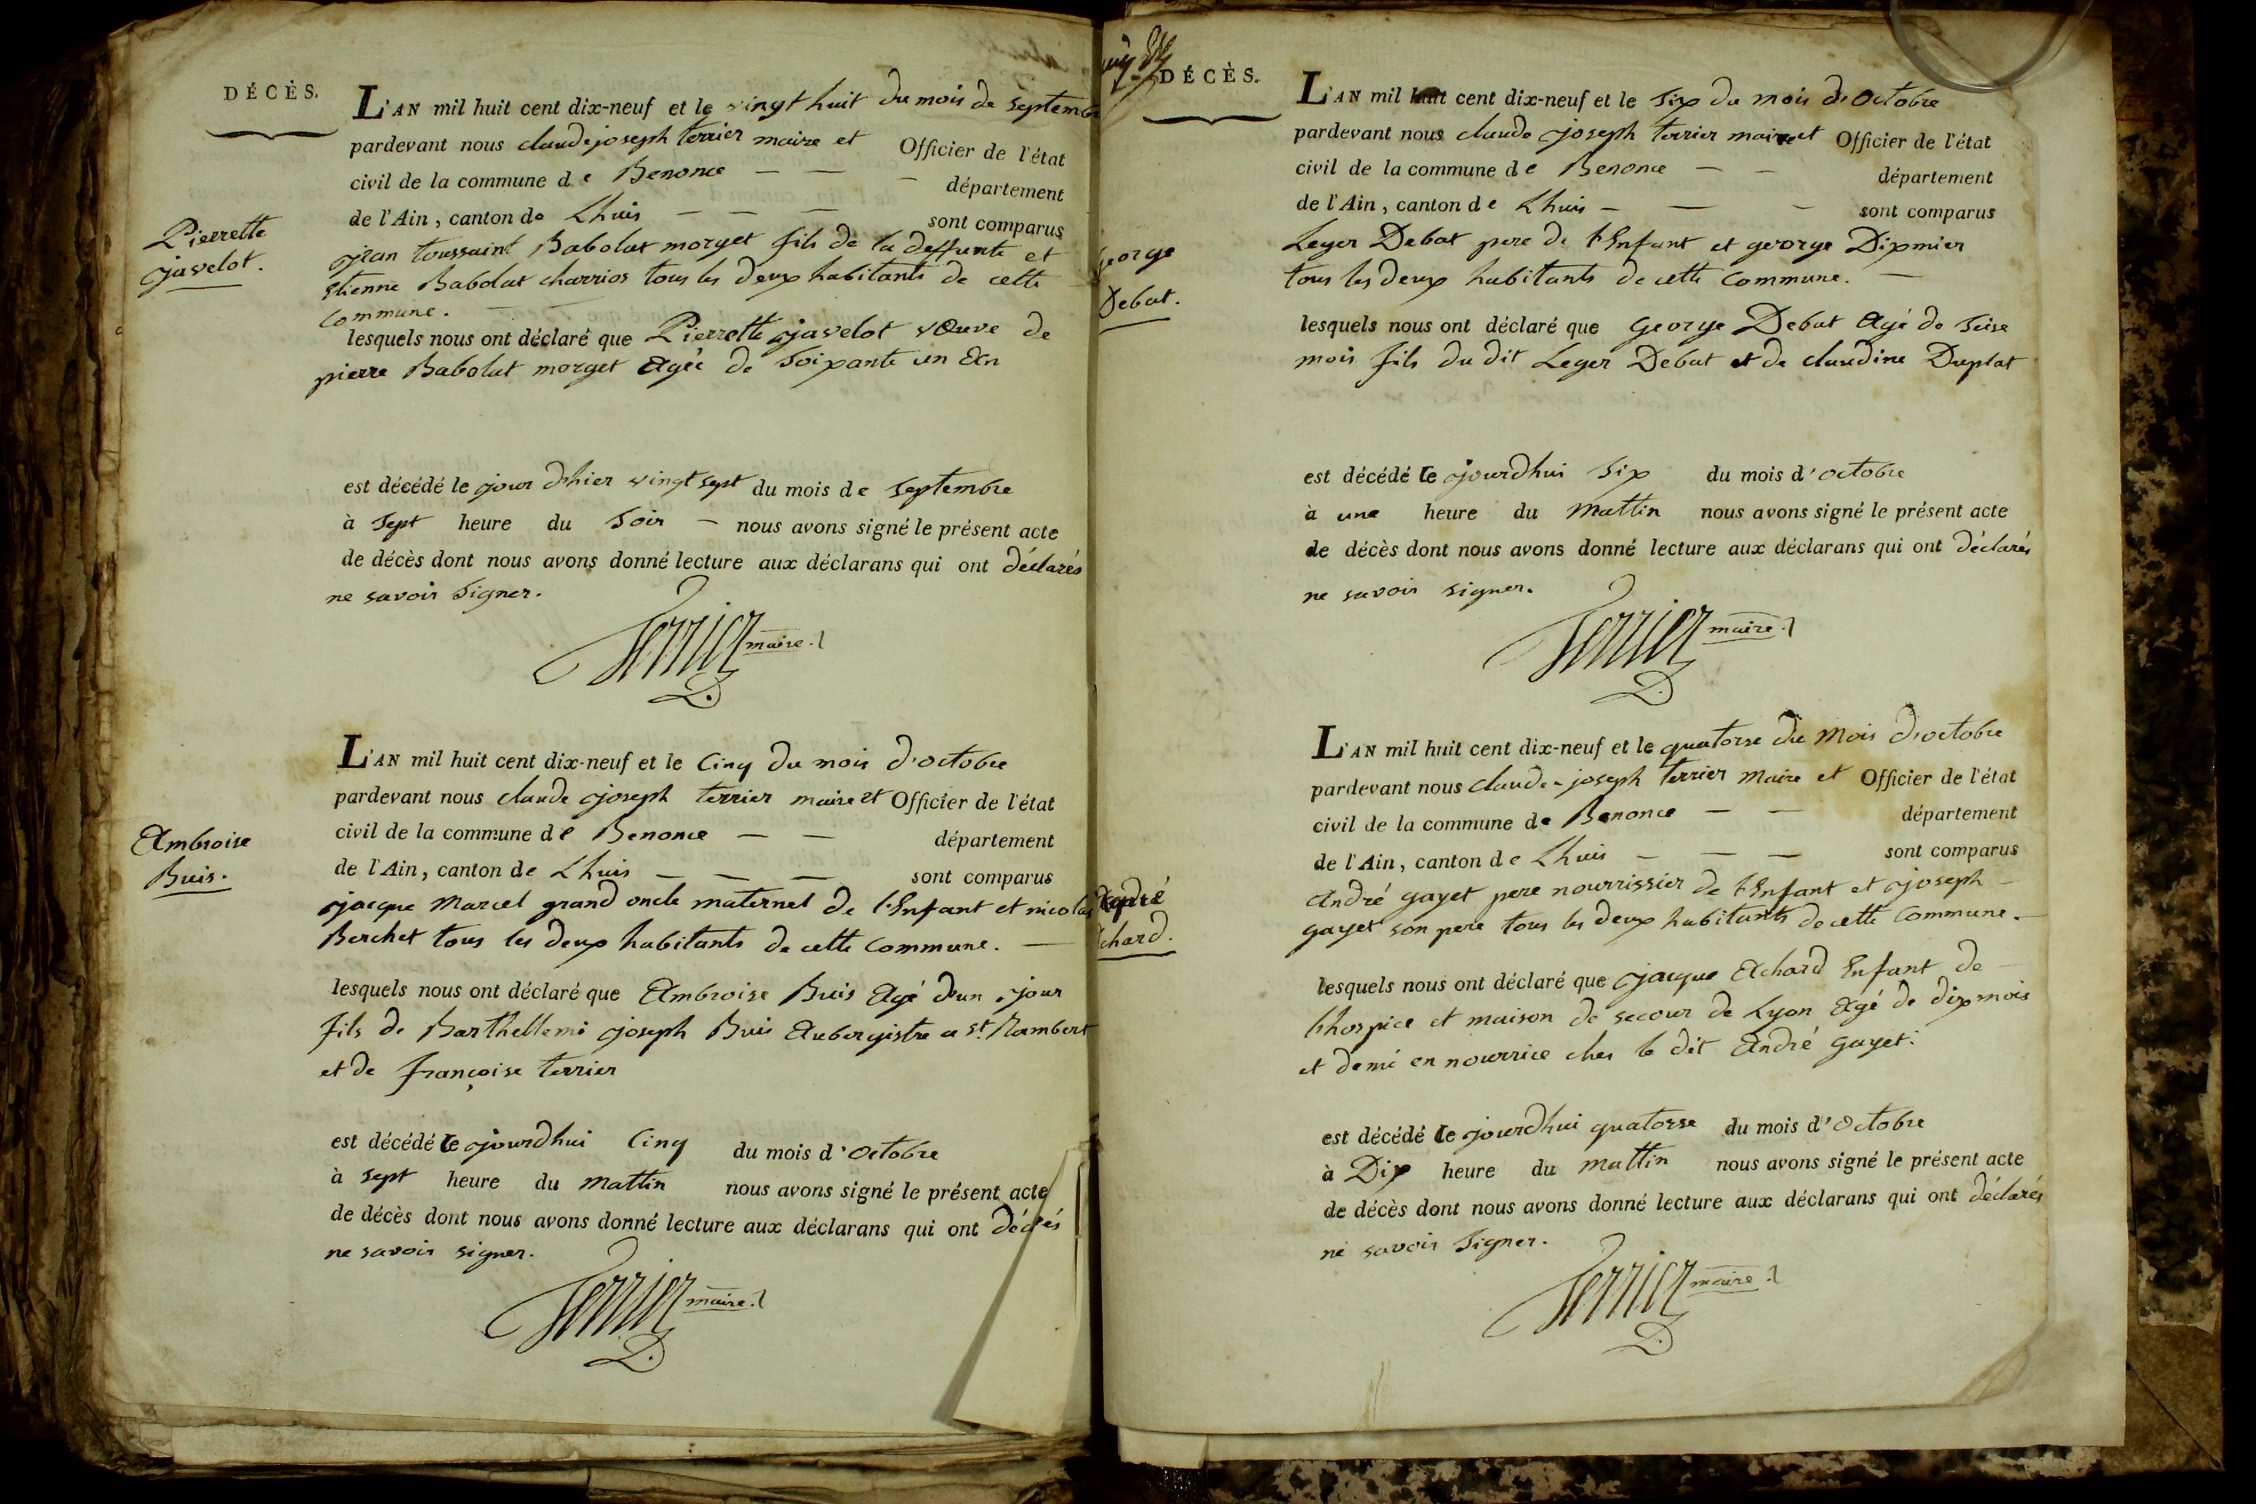 DÉCÈS.
L'AN mil huit cent dix-neuf et le vingt huit du mois de septembre
pardevant nous claude joseph terrier maire et Officier de l'état
civil de la commune de Benonce — — — département
de l'Ain, canton de Lhuis — — — sont comparus
Pierrette
javelot.
jean toussaint Babolat morget fils de la deffunte et
etienne Babolat charrios tous les deux habitants de cette
commune. —
lesquels nous ont déclaré que Pierrette javelot vœuve de
pierre Babolat morget Agée de soixante un An
est décédé le jour d'hier vingt sept du mois de septembre
à sept heure du soir — nous avons signé le présent acte
de décès dont nous avons donné lecture aux déclarans qui ont déclarés
ne savoir signer.
Terrier maire.
L'AN mil huit cent dix-neuf et le cinq du mois d'octobre
pardevant nous claude joseph terrier maire et Officier de l'état
civil de la commune de Benonce — — département
de l'Ain, canton de Lhuis — — — sont comparus
Ambroise
Buis.
jacque Marcel grand oncle maternel de l'Enfant et nicolas
Berchet tous les deux habitants de cette commune. —
lesquels nous ont déclaré que Ambroise Buis Agé d'un jour
fils de Barthellemi joseph Buis Aubergistre a St. Rambert
et de françoise terrier
est décédé le jourdhui cinq du mois d'octobre
à sept heure du mattin nous avons signé le présent acte
de décès dont nous avons donné lecture aux déclarans qui ont
ne savoir signer.
Terrier maire.
DÉCÈS.
L'AN mil huit cent dix-neuf et le six du mois d'octobre
pardevant nous claude joseph terrier maire et Officier de l'état
civil de la commune de Benonce — — département
de l'Ain, canton de Lhuis — — — sont comparus
george
Debat.
Leger Debat pere de l'Enfant et george Dixmier
tous les deux habitants de cette commune. —
lesquels nous ont déclaré que george Debat Agé de seise
mois fils du dit Leger Debat et de claudine Duplat
est décédé le jourdhui six du mois d'octobre
à une heure du mattin nous avons signé le présent acte
de décès dont nous avons donné lecture aux déclarans qui ont déclarés
ne savoir signer.
Terrier maire.
L'AN mil huit cent dix-neuf et le quatorse du mois d'octobre
pardevant nous claude-joseph terrier maire et Officier de l'état
civil de la commune de Benonce — — département
de l'Ain, canton de Lhuis — — — sont comparus
chard.
André gayet pere nourrissier de l'Enfant et joseph —
gayet son pere tous les deux habitants de cette commune. —
lesquels nous ont déclaré que jacque Achard Enfant de —
l'hospice et maison de secour de Lyon Agé de dix mois
et demi en nourrice ches le dit André gayet.
est décédé le jourdhui quatorse du mois d'octobre
à Dix heure du mattin nous avons signé le présent acte
de décès dont nous avons donné lecture aux déclarans qui ont déclarés
ne savoir signer.
Terrier maire.